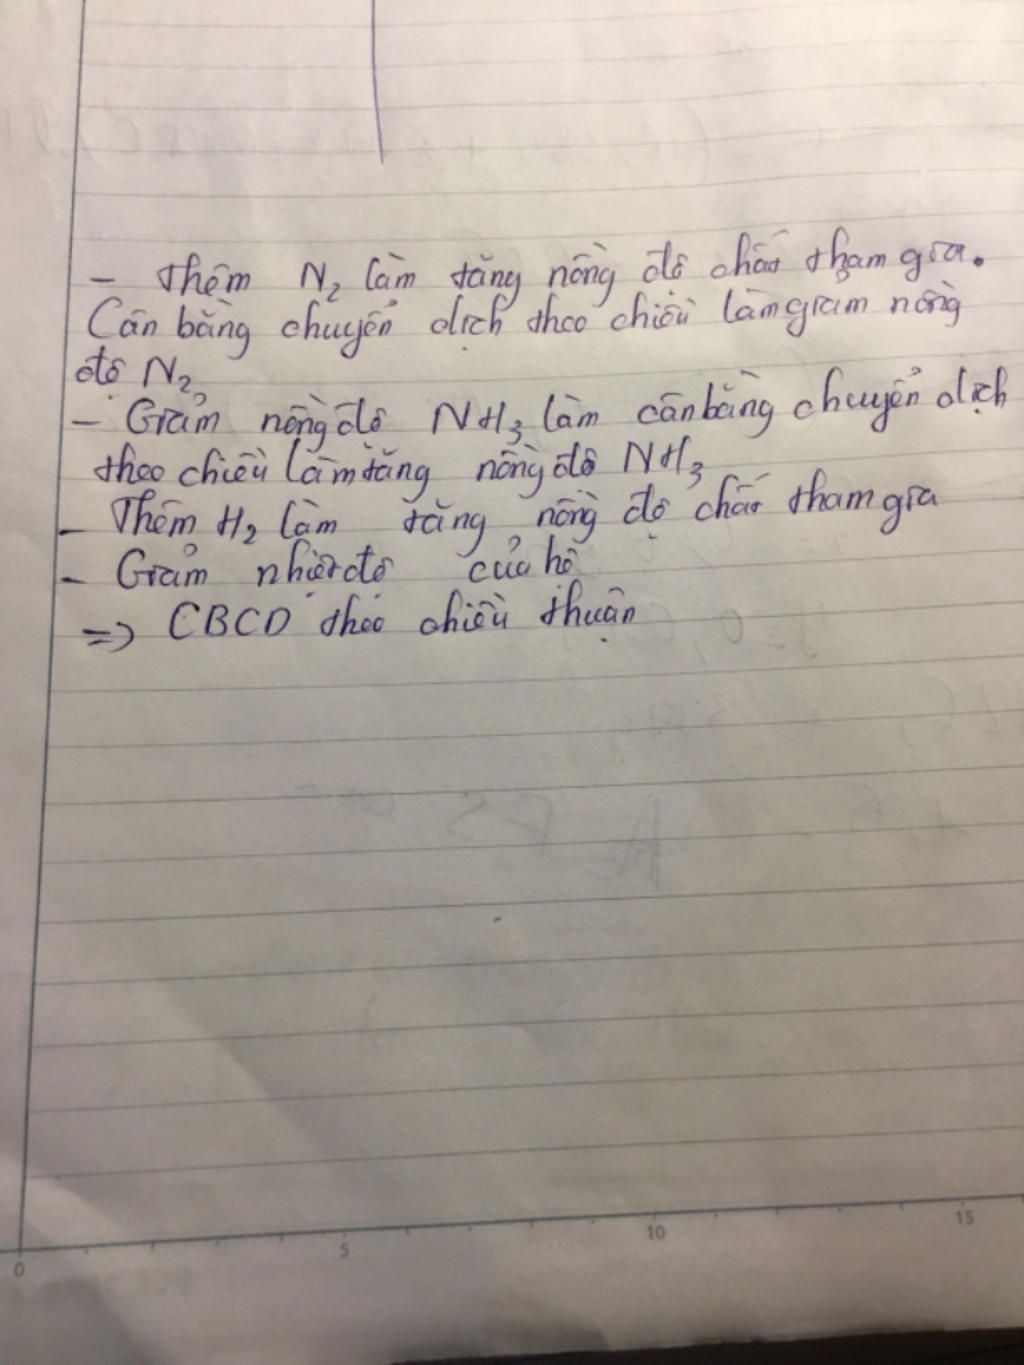 - Thêm N₂ làm tăng nồng độ chất tham gia.
Cân bằng chuyển dịch theo chiều làm giảm nồng
độ N₂
- Giảm nồng độ NH₃ làm cân bằng chuyển dịch
theo chiều làm tăng nồng độ NH₃
- Thêm H₂ làm tăng nồng độ chất tham gia
- Giảm nhiệt độ của hệ
=> CBCD theo chiều thuận
0 5 10 15